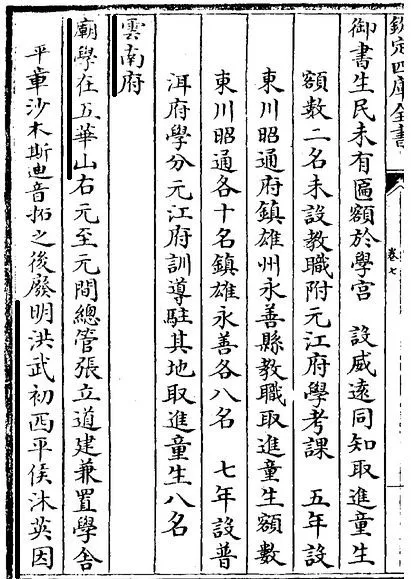 欽定四庫全書
卷七
御書生民未有匾額於學宮　設威遠同知取進童生
額數二名未設教職附元江府學考課　五年設
東川昭通府鎮雄州永善縣教職取進童生額數
東川昭通各十名鎮雄永善各八名　七年設普
洱府學分元江府訓導駐其地取進童生八名
雲南府
廟學在五華山右元至元間總管張立道建兼置學舍
平章沙木斯迪音拓之後廢明洪武初西平侯沐英因